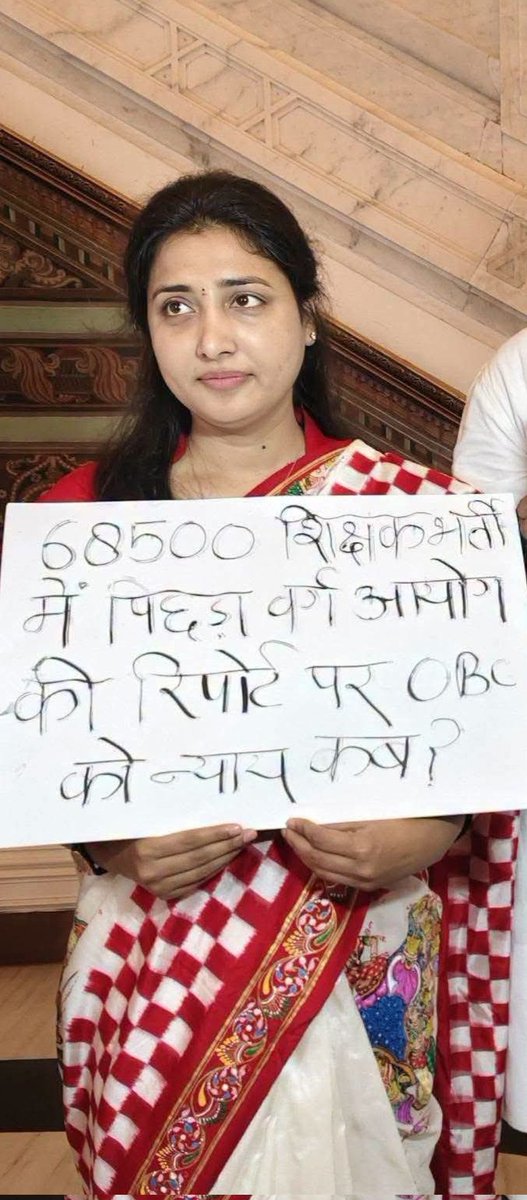 68500 शिक्षक भर्ती
में पिछड़ा वर्ग आयोग
की रिपोर्ट पर OBC
को न्याय कब?